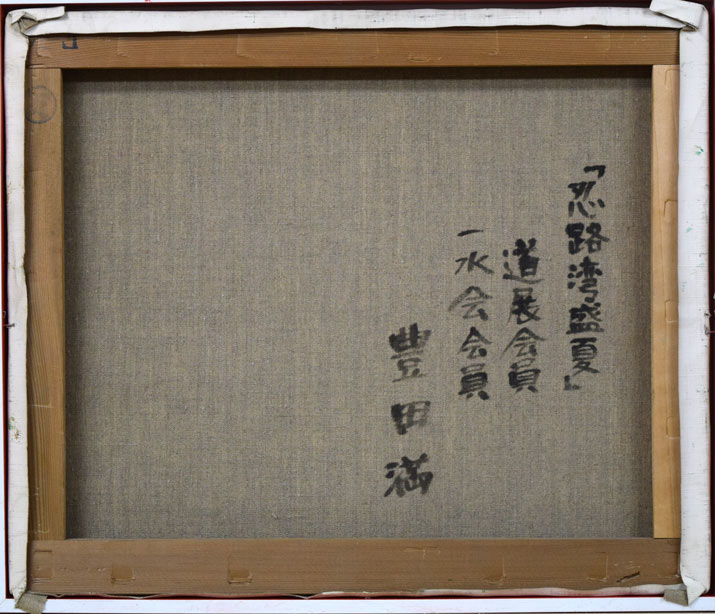 「忍路湾盛夏」
道展会員
一水会会員
豊田満